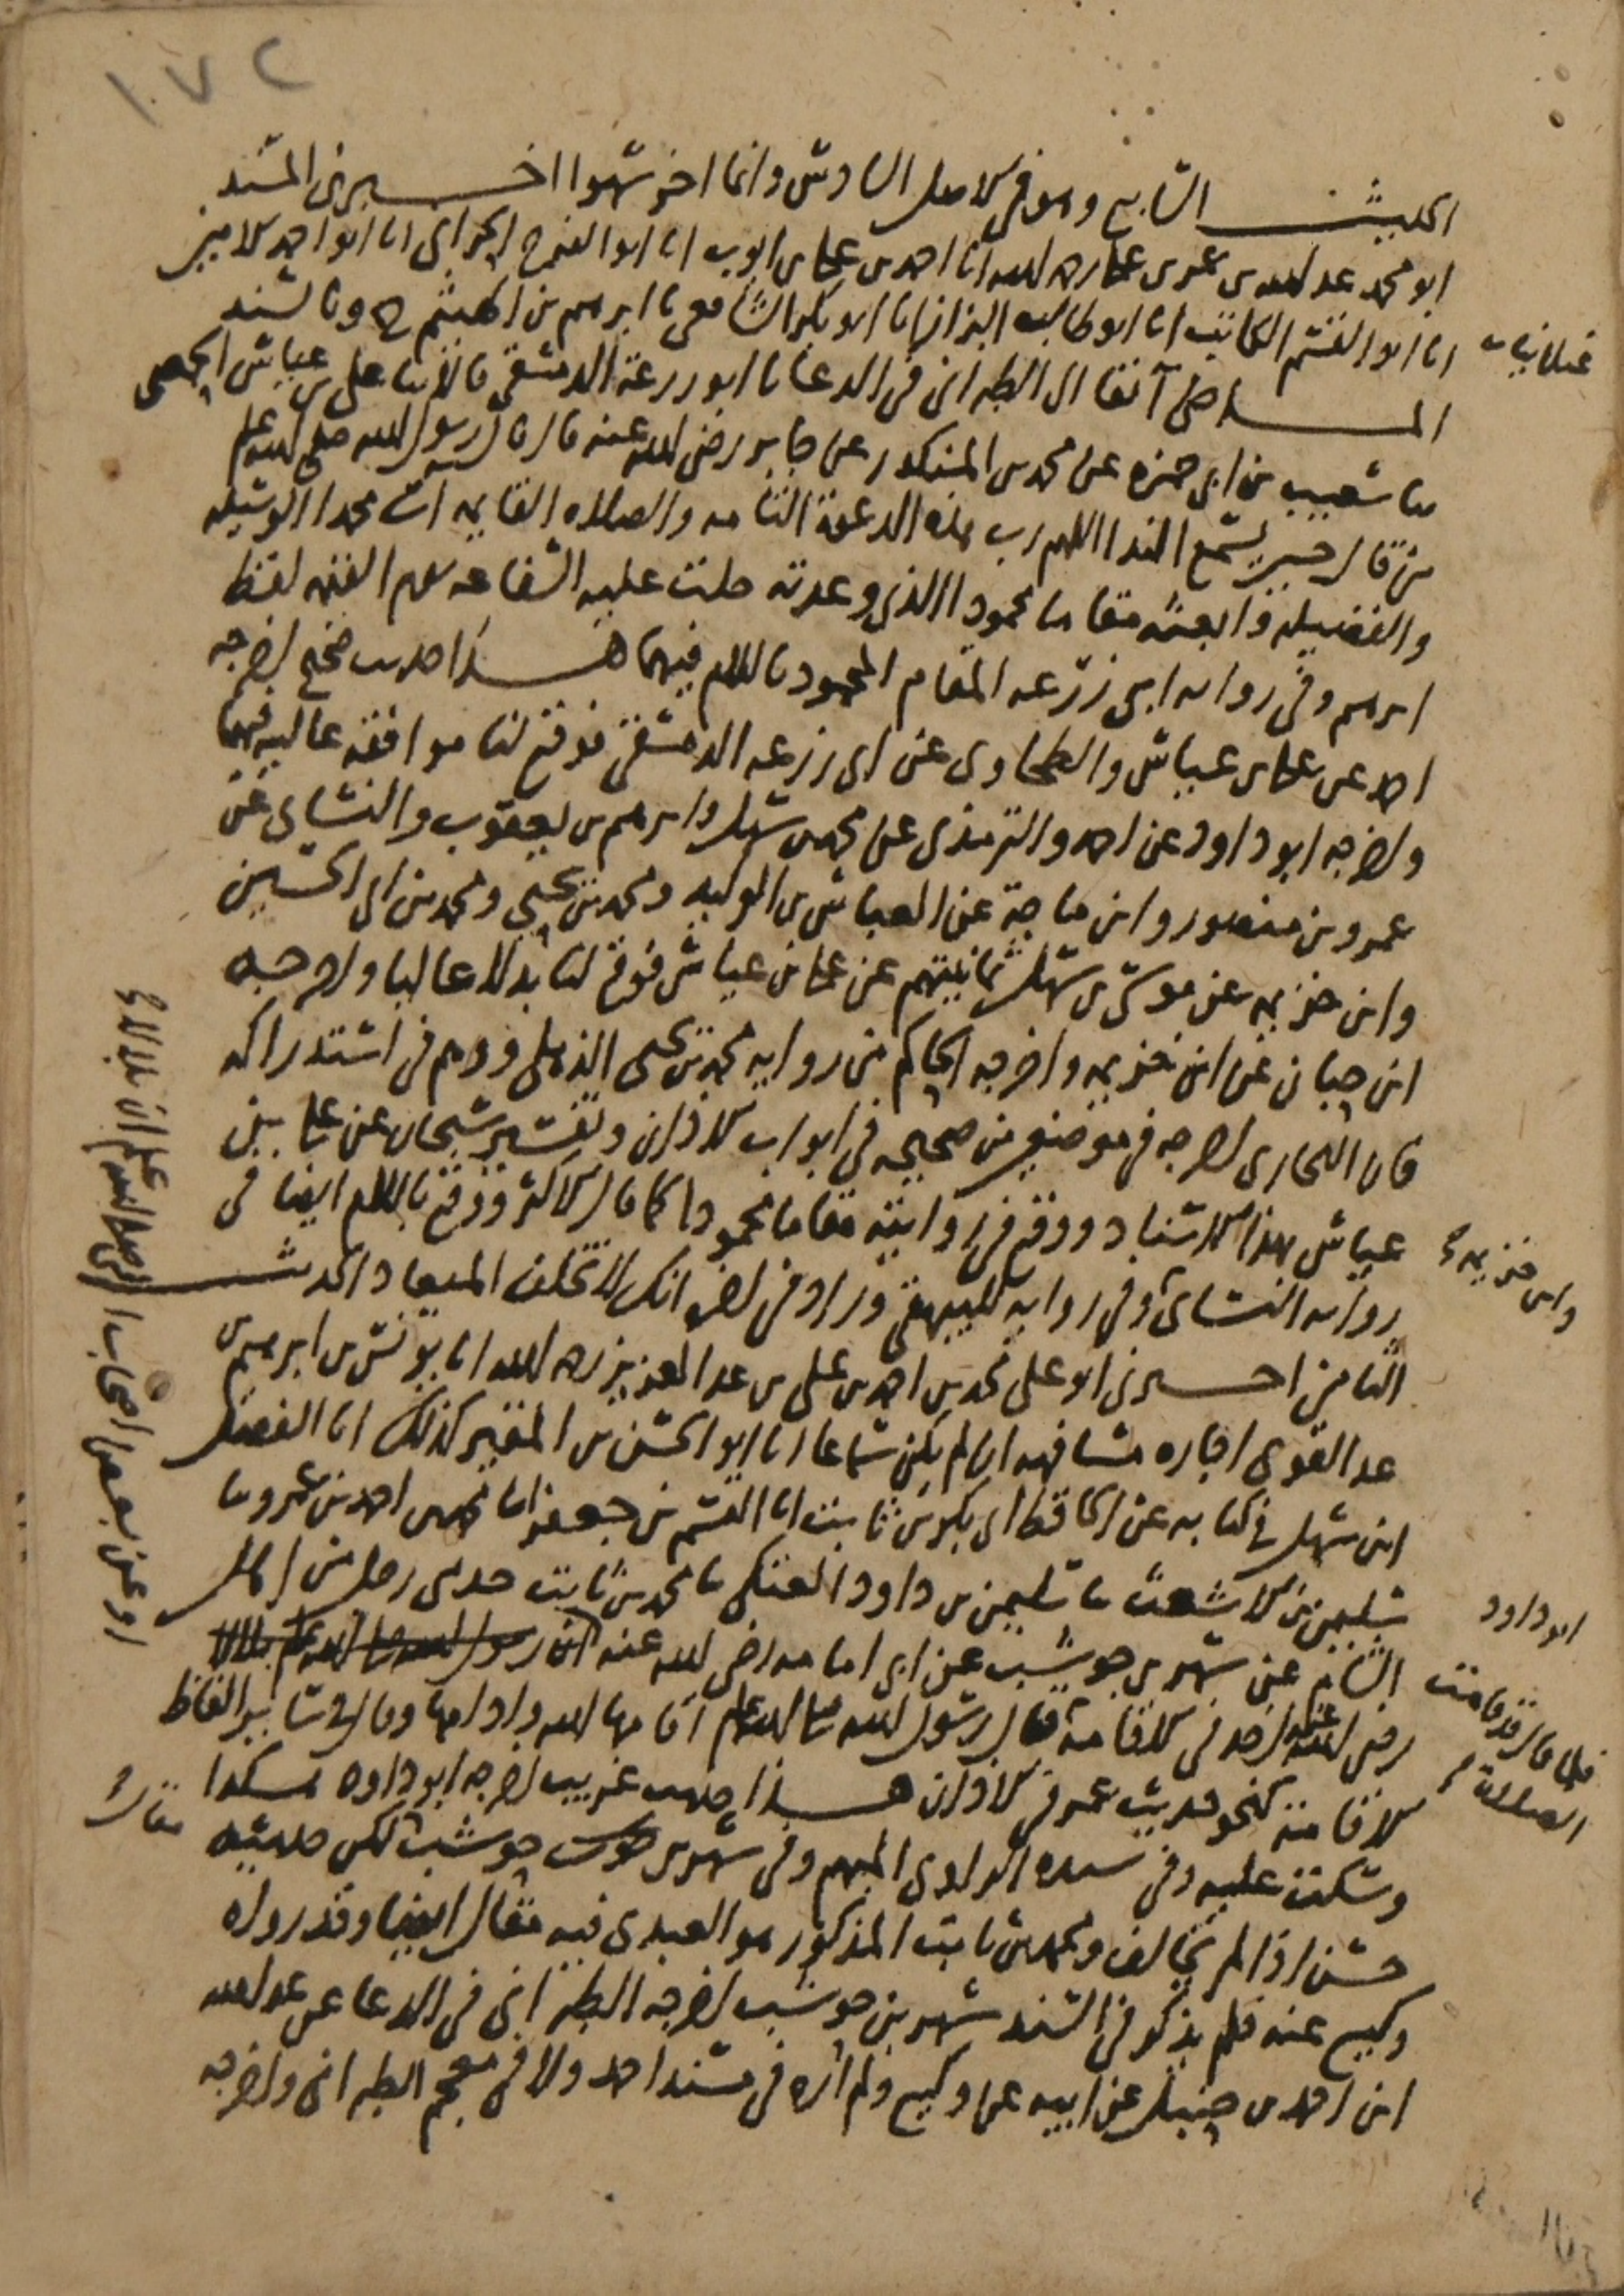 ١٠٧٢
الحديث السابع وهو في الاصل السادس وانما اخر سهوا اخبرني المسند
ابو محمد عبد الله بن عمر بن علي رحمه الله انا احمد بن علي بن ايوب انا ابو الفرج الحراني انا ابو احمد الامين
انا ابو القسم الكاتب انا ابو طالب البزاز انا ابو بكر الشافعي نا ابرهيم بن الهيثم ح وبالسند
غيلانيات
الماضي آنفا الى الطبراني في الدعا نا ابو زرعة الدمشقي قالا ثنا علي بن عياش الحمصي
ثنا شعيب بن ابي حمزه عن محمد بن المنكدر عن جابر رضي الله عنه قال قال رسول الله صلى الله عليه وسلم
من قال حين يسمع الندا اللهم رب هذه الدعوة التامه والصلاه القايمه آت محمدا الوسيله
والفضيله وابعثه مقاما محمودا الذي وعدته حلت عليه الشفاعه يوم القيمه لفظ
ابرهيم وفي روايه ابي زرعه المقام المحمود باللام فيهما هذا حديث صحيح اخرجه
احمد عن علي بن عياش والطحاوي عن ابي زرعه الدمشقي فوقع لنا موافقه عاليه فيهما
واخرجه ابو داود عن احمد والترمذي عن محمد بن سهل وابرهيم بن يعقوب والنساي عن
عمرو بن منصور وابن ماجة عن العباس بن الوليد ومحمد بن يحيى ومحمد بن ابي الحسين
وابن خزيمه عن موسى بن سهل ثمانيتهم عن علي بن عياش فوقع لنا بدلا عاليا واخرجه
ابن حبان عن ابن خزيمه واخرجه الحاكم من روايه محمد بن يحيى الذهلي ووهم في استدراكه
فان البخاري اخرجه في موضعين من صحيحه في ابواب الاذان وتفسير سبحان عن علي بن
عياش بهذا الاسناد ووقع في روايته مقاما محمودا كما قال الاكثر ووقع باللام ايضا في
وابن خزيمه
روايه النساي وفي روايه للبيهقي وزاد في اخره انك لا تخلف الميعاد الحديث
الثامن اخبرني ابو علي محمد بن احمد بن علي بن عبد العزيز رحمه الله انا يونس بن ابرهيم بن
عبد القوي اجازه مشافهه ان لم يكن سماعا انا ابو الحسن بن المقير كذلك انا الفضل
ابن سهل في كتابه عن الحافظ ابي بكر بن ثابت انا القسم بن جعفر انا محمد بن احمد بن عمرو ثنا
سليمن بن الاشعث ثنا سليمن بن داود العتكي ثنا محمد بن ثابت حدثني رجل من اهل
ابو داود
الشام عن شهر بن حوشب عن ابي امامه رضي الله عنه ان رسول الله صلى الله عليه وسلم بلالا
او عن بعض اصحاب النبي صلى الله عليه وسلم ان بلالا
رضي الله عنه اخذ في الاقامة فلما قال قد قامت الصلاة قال رسول الله صلى الله عليه وسلم اقامها الله وادامها وقال في ساير الفاظ
الاقامة كنحو حديث عمر في الاذان هذا حديث غريب اخرجه ابو داود هكذا
وسكت عليه وفي سنده الراوي المبهم وفي شهر بن حوشب مقال لكن حديثه
حسن اذا لم يخالف ومحمد بن ثابت المذكور هو العبدي فيه مقال ايضا وقد رواه
وكيع عنه فلم يذكر في السند شهر بن حوشب اخرجه الطبراني في الدعا عن عبد الله
ابن احمد بن حنبل عن ابيه عن وكيع ولم اره في مسند احمد ولا في معجم الطبراني واخرجه